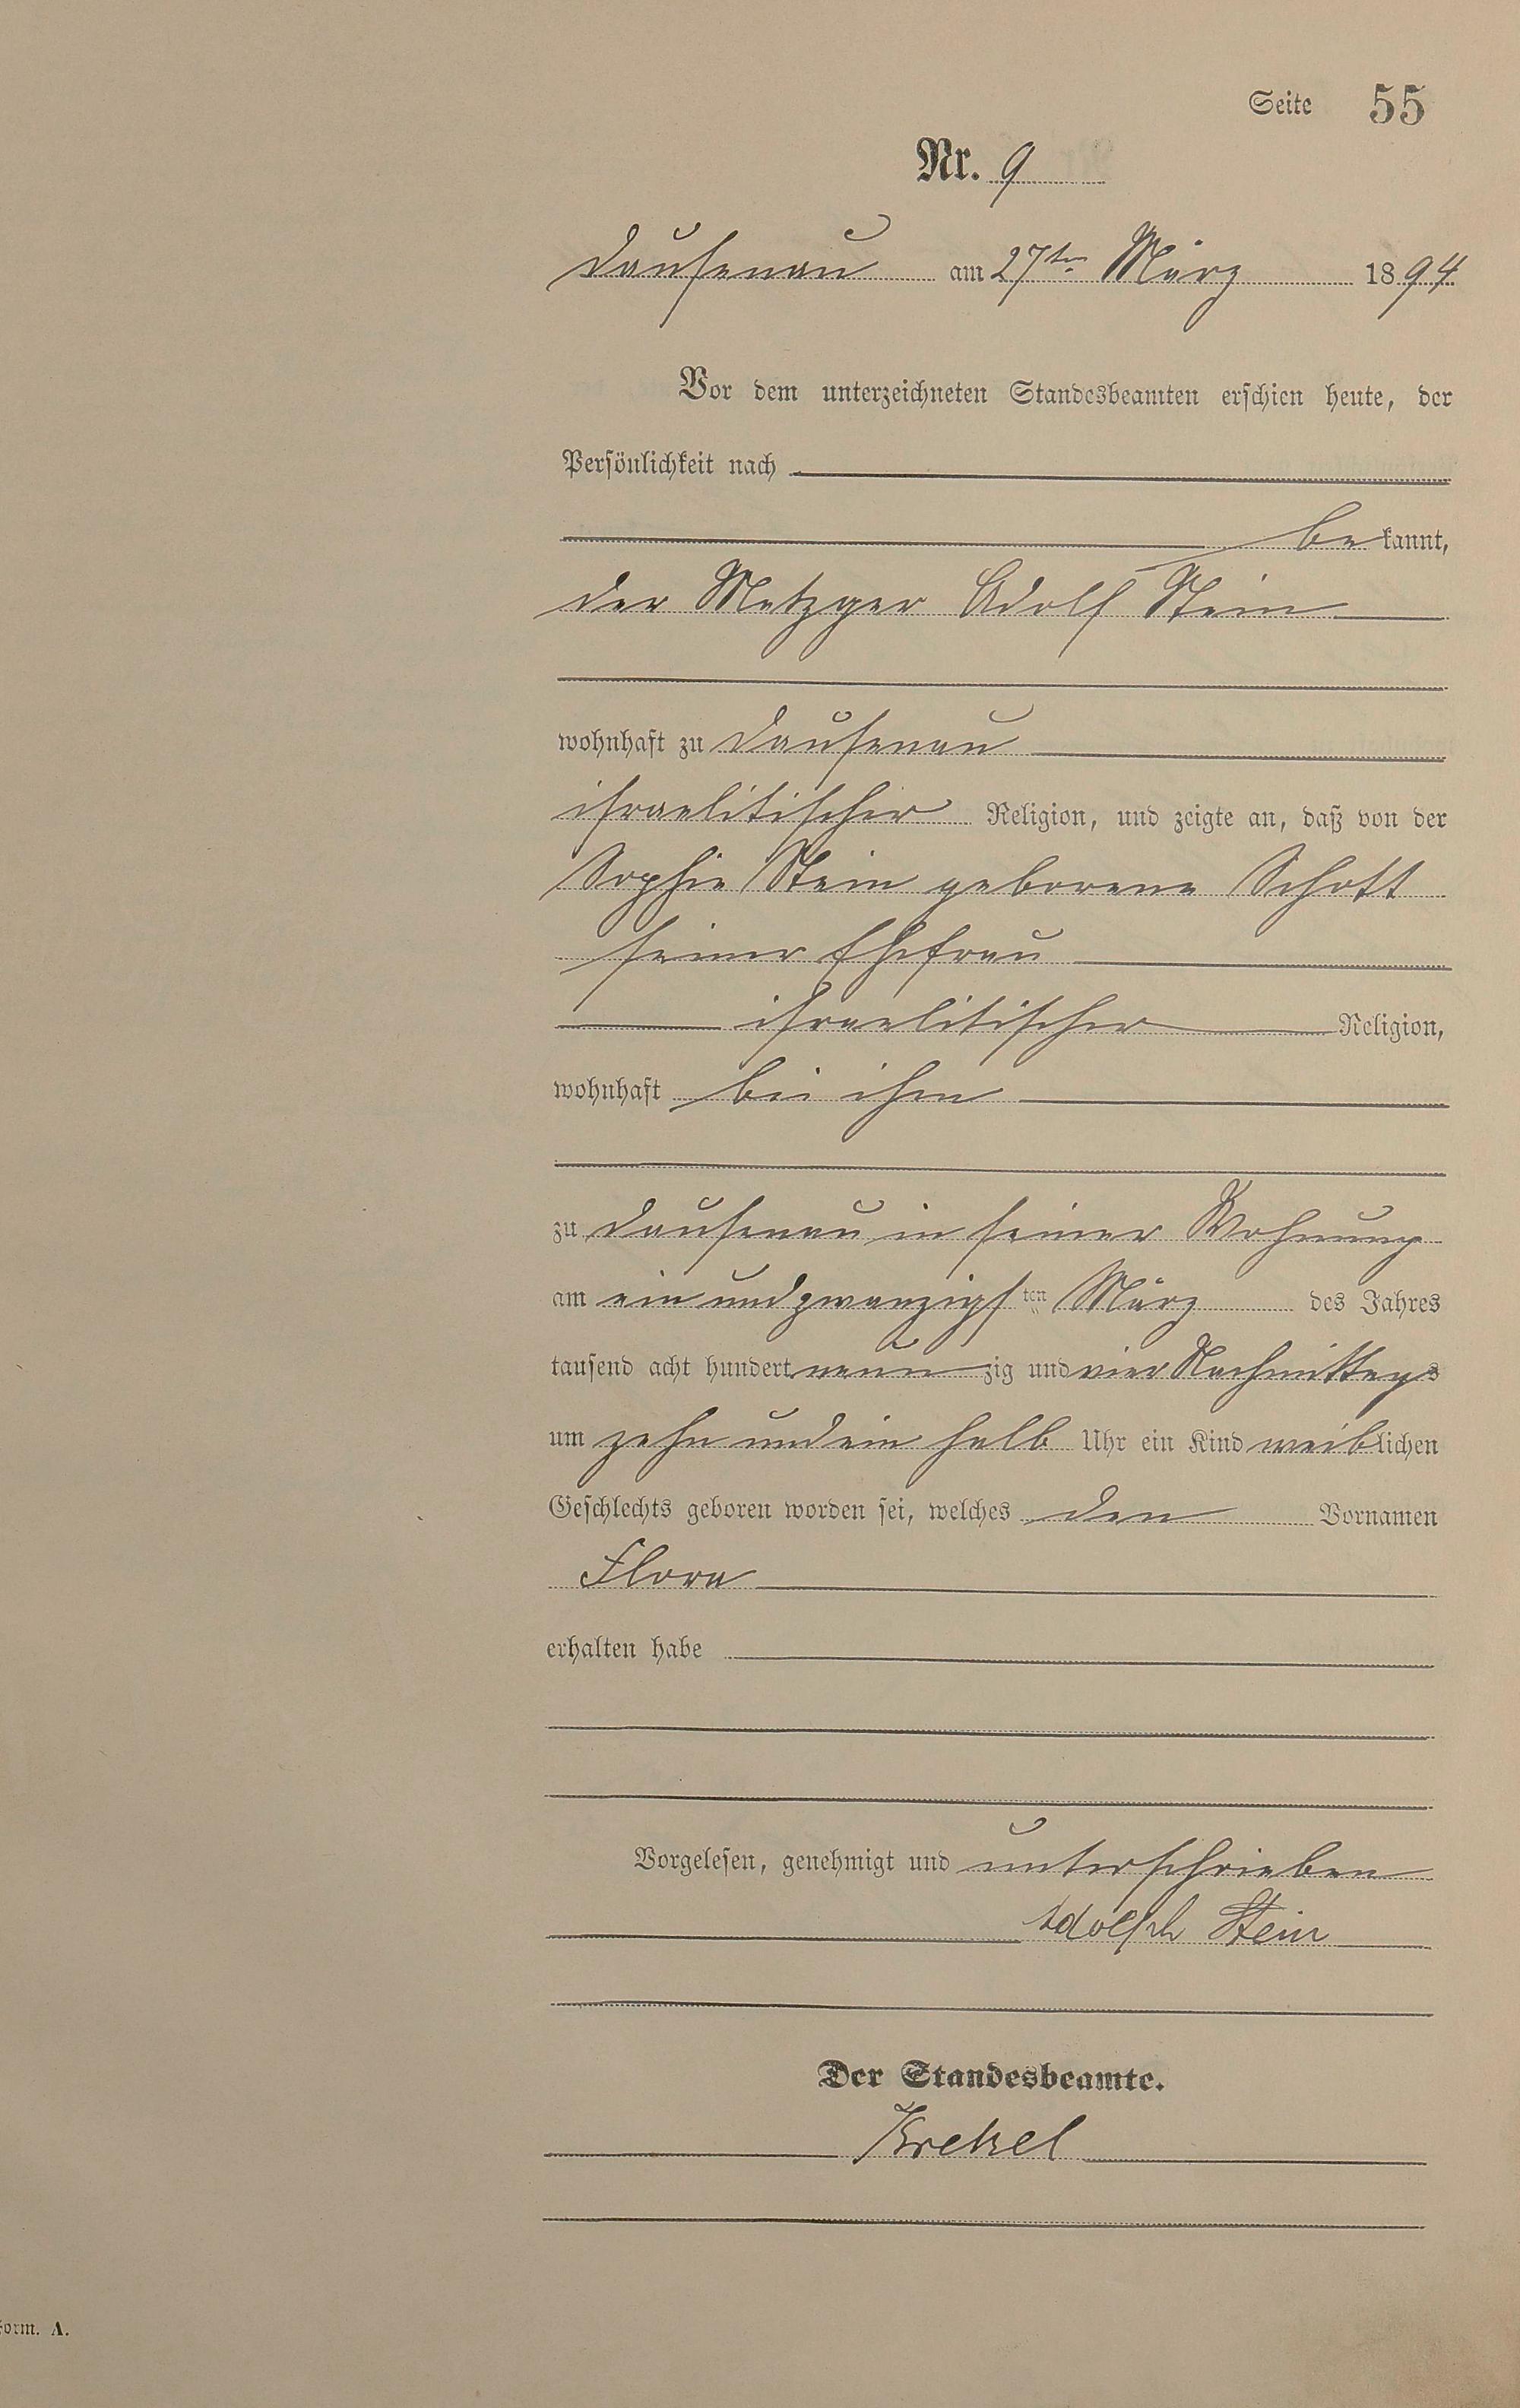 Seite 55
Nr. 9
Dausenau am 27ten März 1894
Vor dem unterzeichneten Standesbeamten erschien heute, der
Persönlichkeit nach
bekannt,
der Metzger Adolf Stein
wohnhaft zu Dausenau
israelitischer Religion, und zeigte an, daß von der
Sophie Stein geborene Schott
seiner Ehefrau
israelitischer Religion,
wohnhaft bei ihm
zu Dausenau in seiner Wohnung
am ein und zwanzigsten März des Jahres
tausend acht hundert neunzig und vier Nachmittags
um zehn und ein halb Uhr ein Kind weiblichen
Geschlechts geboren worden sei, welches den Vornamen
Flora
erhalten habe
Vorgelesen, genehmigt und unterschrieben
Adolph Stein
Der Standesbeamte.
Krekel
Form. A.